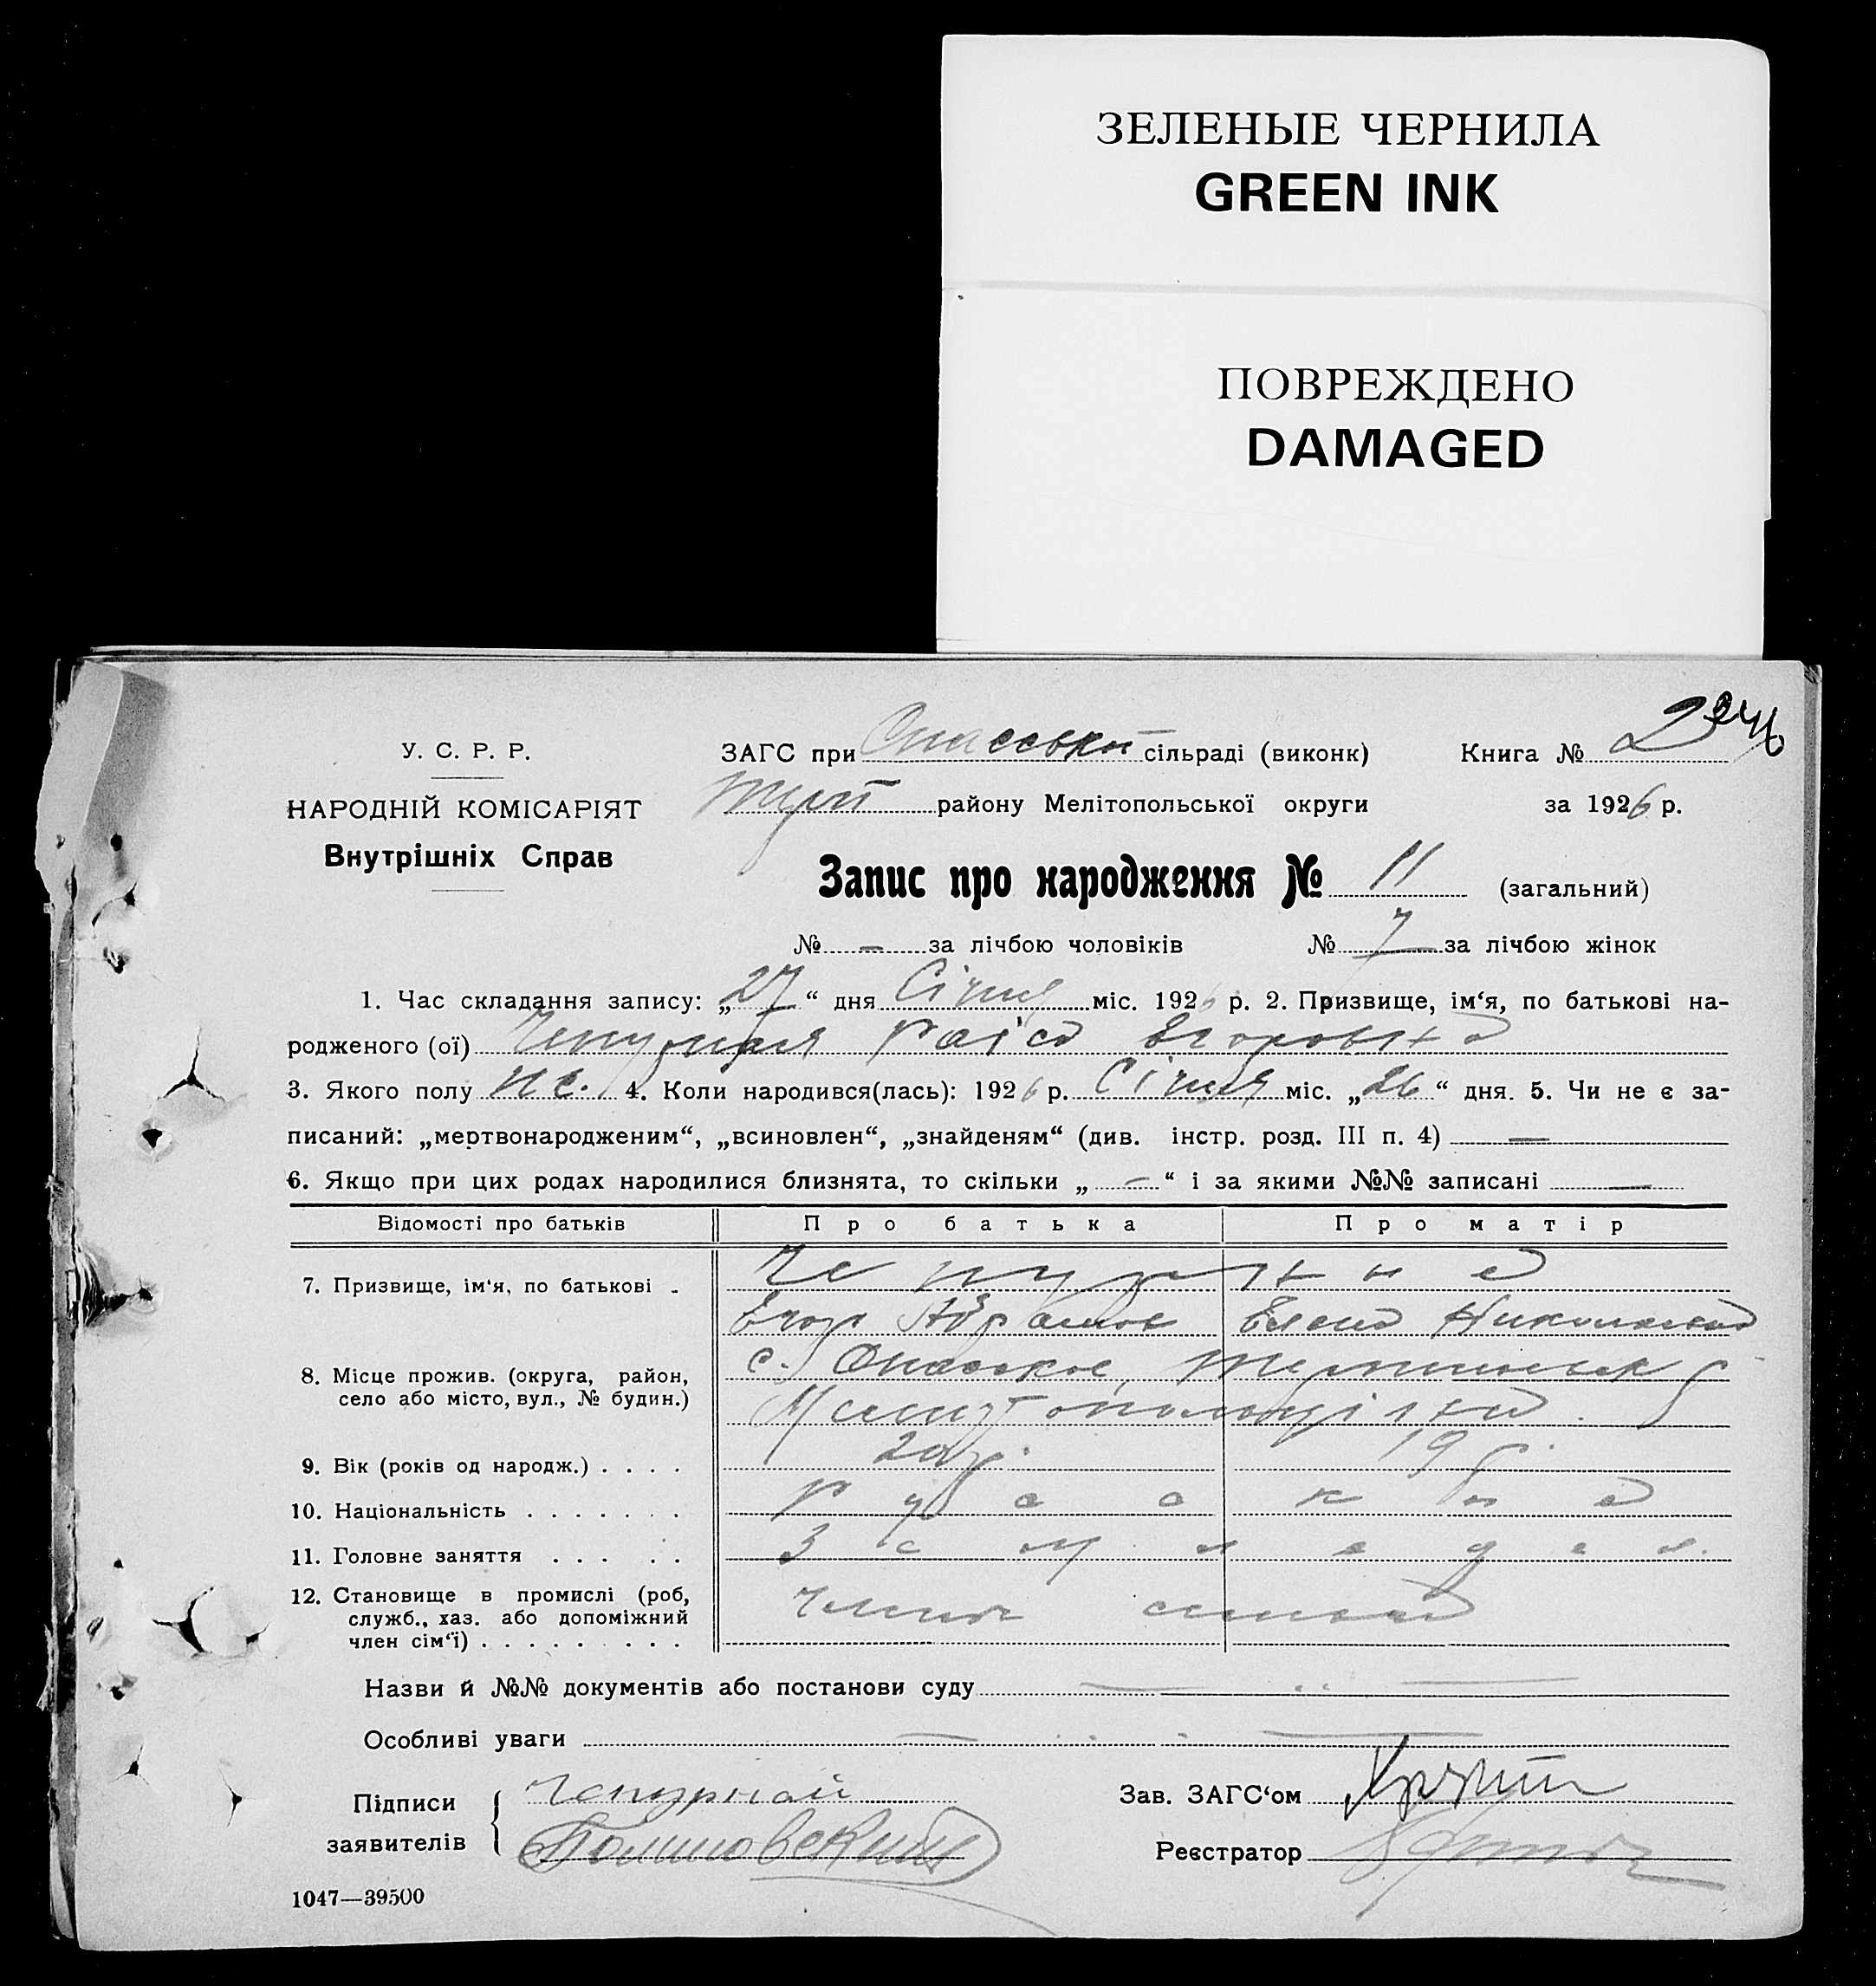 ЗЕЛЕНЫЕ ЧЕРНИЛА
GREEN INK
ПОВРЕЖДЕНО
DAMAGED
У. С. Р. Р.
НАРОДНІЙ КОМІСАРІЯТ
Внутрішніх Справ
ЗАГС при Спасській сільраді (виконк) Книга № 2
району Мелітопольської округи за 1926 р.
Запис про народження № 11 (загальний)
№ — за лічбою чоловіків № 7 за лічбою жінок
1. Час складання запису: „27“ дня Січня міс. 1926 р. 2. Призвище, ім‘я, по батькові на-
родженого (ої) Чепурная Раіса Егоровна
3. Якого полу 4. Коли народився(лась): 1926 р. Січня міс. „26“ дня. 5. Чи не є за-
писаний: „мертвонародженим“, „всиновлен“, „знайденям“ (див. інстр. розд. III п. 4) —
6. Якщо при цих родах народилися близнята, то скільки „ — “ і за якими №№ записані —
Відомості про батьків Про батька Про матір
7. Призвище, ім‘я, по батькові
Егор Абрамов Елена Николаевна
8. Місце прожив. (округа, район,
село або місто, вул., № будин.)
с. Спасское
9. Вік (років од народж.) . . . . 20 р. 19 р.
10. Національність . . . . . . .
11. Головне заняття . . . . . Земледел.
12. Становище в промислі (роб,
служб., хаз. або допоміжний
член сім‘ї) . . . . . . . . .
Назви й №№ документів або постанови суду
Особливі уваги
Підписи
заявителів
Чепурной
Зав. ЗАГС‘ом
Реєстратор
1047—39500